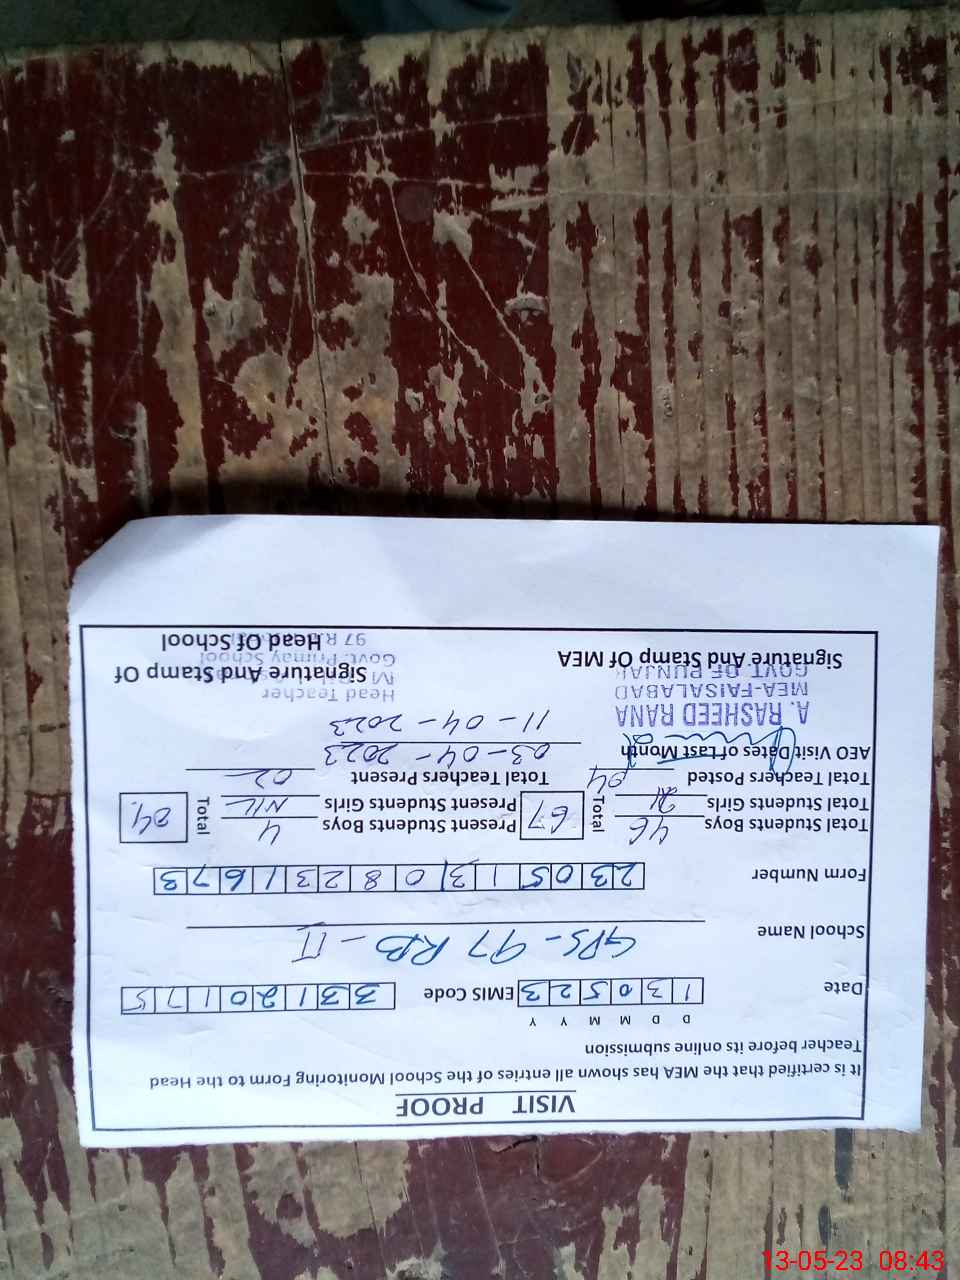 VISIT PROOF
It is certified that the MEA has shown all entries of the School Monitoring Form to the Head
Teacher before its online submission
D D M M Y Y
Date 1 3 0 5 2 3 EMIS Code 3 3 1 2 0 1 7 5
School Name GPS - 97 RB - II
Form Number 2 3 0 5 1 3 0 8 2 3 1 6 7 3
Total Students Boys 46 Total 67 Present Students Boys 4 Total 04
Total Students Girls 21 Present Students Girls NIL
Total Teachers Posted 04 Total Teachers Present 02
AEO Visit Dates of Last Month 03-04-2023
11-04-2023
A. RASHEED RANA
MEA-FAISALABAD
GOVT OF PUNJAB
Head Teacher
Govt. Primay School
97 R.B
Signature And Stamp Of MEA
Signature And Stamp Of
Head Of School
13-05-23 08:43